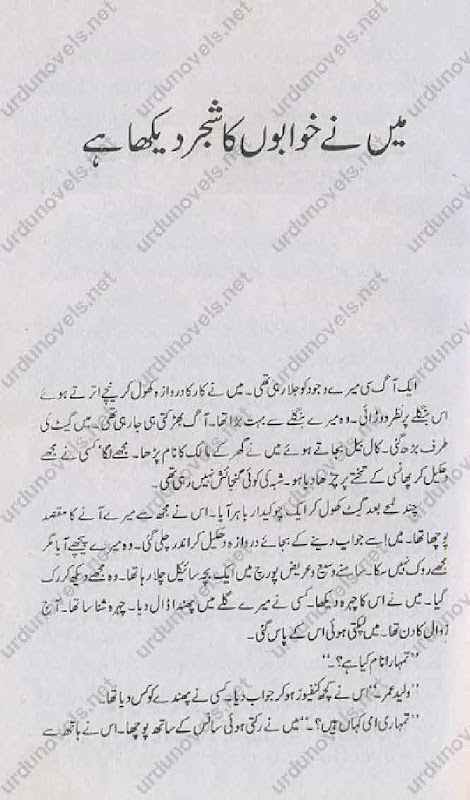 میں نے خوابوں کا شجر دیکھا ہے
ایک آگ سی میرے وجود کو جلا رہی تھی۔ میں نے کار کا دروازہ کھول کر نیچے اترتے ہوئے
اس بنگلے پر نظر دوڑائی۔ وہ میرے بنگلے سے بہت بڑا تھا۔ آگ بھڑکتی ہی جا رہی تھی۔ میں گیٹ کی
طرف بڑھ گئی۔ کال بیل بجاتے ہوئے میں نے گھر کے مالک کا نام پڑھا۔ مجھے لگا کسی نے مجھے
دھکیل کر پھانسی کے تختے پر چڑھا دیا ہو۔ شبہ کی کوئی گنجائش نہیں رہی تھی۔
چند لمحے بعد گیٹ کھول کر ایک چوکیدار باہر آیا۔ اس نے مجھ سے میرے آنے کا مقصد
پوچھا تھا۔ میں اسے جواب دینے کے بجائے دروازہ دھکیل کر اندر چلی گئی۔ وہ میرے پیچھے آیا مگر
مجھے روک نہیں سکا۔ سامنے وسیع و عریض پورچ میں ایک بچہ سائیکل چلا رہا تھا۔ وہ مجھے دیکھ کر رک
گیا۔ میں نے اس کا چہرہ دیکھا۔ کسی نے میرے گلے میں پھندا ڈال دیا۔ چہرہ شناسا تھا۔ آج
زوال کا دن تھا۔ میں لپکتی ہوئی اس کے پاس گئی۔
"تمہارا نام کیا ہے؟۔"
"ولید عمر۔" اس نے کچھ کنفیوز ہو کر جواب دیا۔ کسی نے پھندے کو کس دیا تھا۔
"تمہاری امی کہاں ہیں؟۔" میں نے رکتی ہوئی سانس کے ساتھ پوچھا۔ اس نے ہاتھ سے
urdunovels.net